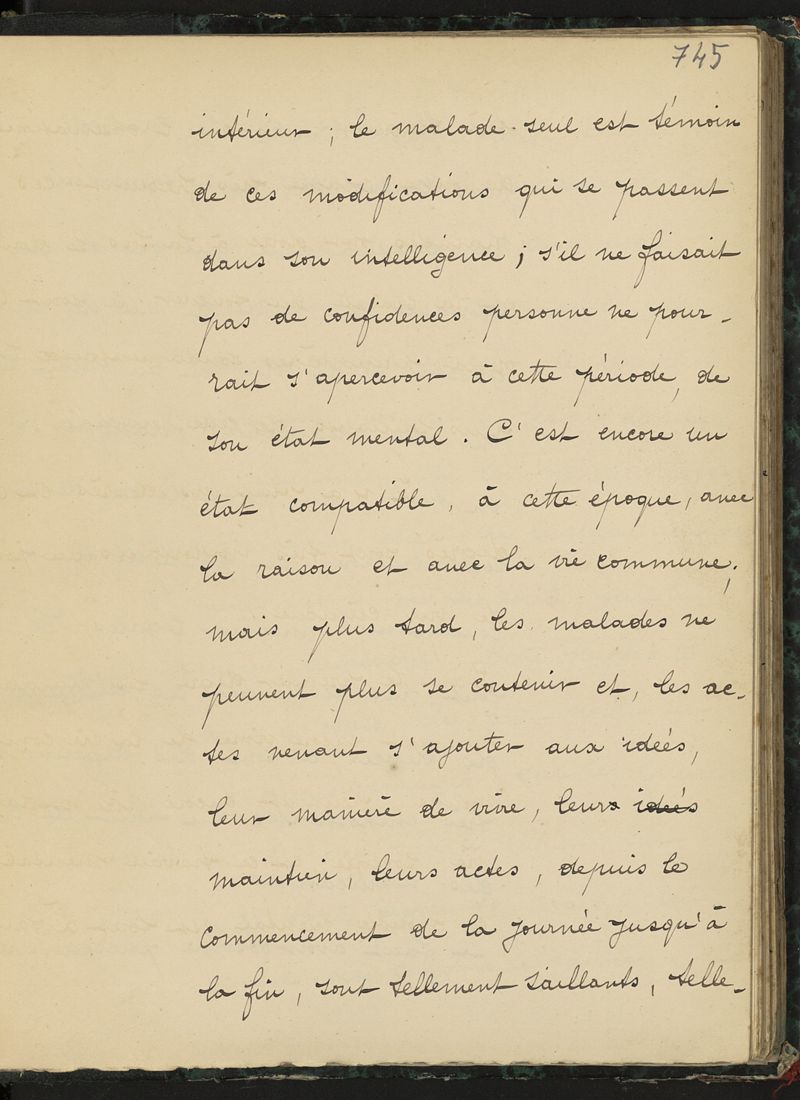 745
intérieur ; le malade seul est témoin
de ces modifications qui se passent
dans son intelligence ; s'il ne faisait
pas de confidences personne ne pour-
rait s'apercevoir à cette période, de
son état mental. C'est encore un
état compatible, à cette époque, avec
la raison et avec la vie commune ;
mais plus tard, les malades ne
peuvent plus se contenir et, les ac-
tes venant s'ajouter aux idées,
leur manière de vivre, leurs idées
maintien, leurs actes, depuis le
commencement de la journée jusqu'à
la fin, sont tellement saillants, telle-